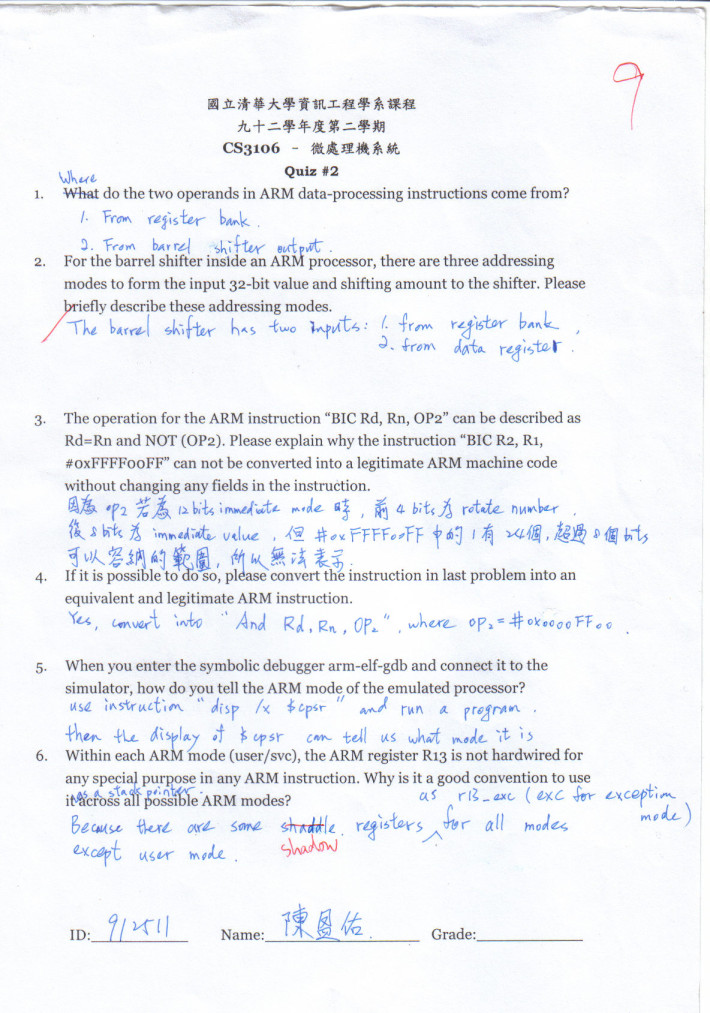 9
國立清華大學資訊工程學系課程
九十二學年度第二學期
CS3106 - 微處理機系統
Quiz #2
Where
1. What do the two operands in ARM data-processing instructions come from?
1. From register bank.
2. From barrel shifter output.
2. For the barrel shifter inside an ARM processor, there are three addressing
modes to form the input 32-bit value and shifting amount to the shifter. Please
briefly describe these addressing modes.
The barrel shifter has two inputs: 1. from register bank,
2. from data register.
3. The operation for the ARM instruction “BIC Rd, Rn, OP2” can be described as
Rd=Rn and NOT (OP2). Please explain why the instruction “BIC R2, R1,
#0xFFFF00FF” can not be converted into a legitimate ARM machine code
without changing any fields in the instruction.
因為 op2 若為 12 bits immediate mode 時, 前 4 bits 為 rotate number.
後 8 bits 為 immediate value, 但 #0xFFFF00FF 中的 1 有 24個, 超過 8 個 bits
可以容納的範圍, 所以無法表示.
4. If it is possible to do so, please convert the instruction in last problem into an
equivalent and legitimate ARM instruction.
Yes, convert into "And Rd, Rn, OP2", where OP2 = #0x0000FF00.
5. When you enter the symbolic debugger arm-elf-gdb and connect it to the
simulator, how do you tell the ARM mode of the emulated processor?
use instruction "disp /x $cpsr" and run a program.
then the display of $cpsr can tell us what mode it is
6. Within each ARM mode (user/svc), the ARM register R13 is not hardwired for
any special purpose in any ARM instruction. Why is it a good convention to use
as a stack pointer.
it across all possible ARM modes?
as r13_exc (exc for exception mode)
Because there are some registers for all modes
except user mode.
shadow
ID: 912511 Name: 陳盈佑 Grade: